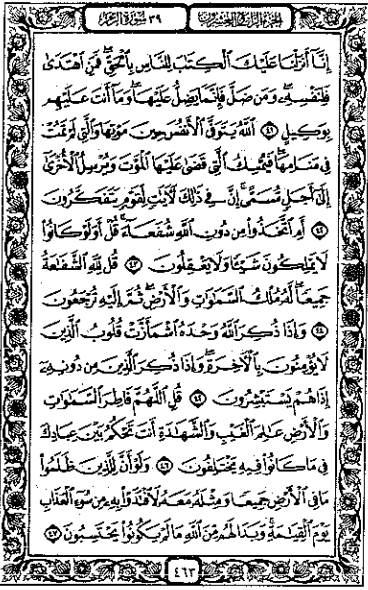 الجزء الرابع والعشرون ٣٩ سورة الزمر
إِنَّا أَنزَلْنَا عَلَيْكَ الْكِتَابَ لِلنَّاسِ بِالْحَقِّ فَمَنِ اهْتَدَىٰ
فَلِنَفْسِهِ وَمَن ضَلَّ فَإِنَّمَا يَضِلُّ عَلَيْهَا وَمَا أَنتَ عَلَيْهِم
بِوَكِيلٍ ٤١ اللَّهُ يَتَوَفَّى الْأَنفُسَ حِينَ مَوْتِهَا وَالَّتِي لَمْ تَمُتْ
فِي مَنَامِهَا فَيُمْسِكُ الَّتِي قَضَىٰ عَلَيْهَا الْمَوْتَ وَيُرْسِلُ الْأُخْرَىٰ
إِلَىٰ أَجَلٍ مُّسَمًّى إِنَّ فِي ذَٰلِكَ لَآيَاتٍ لِّقَوْمٍ يَتَفَكَّرُونَ
٤٢ أَمِ اتَّخَذُوا مِن دُونِ اللَّهِ شُفَعَاءَ قُلْ أَوَلَوْ كَانُوا
لَا يَمْلِكُونَ شَيْئًا وَلَا يَعْقِلُونَ ٤٣ قُل لِّلَّهِ الشَّفَاعَةُ
جَمِيعًا لَّهُ مُلْكُ السَّمَاوَاتِ وَالْأَرْضِ ثُمَّ إِلَيْهِ تُرْجَعُونَ
٤٤ وَإِذَا ذُكِرَ اللَّهُ وَحْدَهُ اشْمَأَزَّتْ قُلُوبُ الَّذِينَ
لَا يُؤْمِنُونَ بِالْآخِرَةِ وَإِذَا ذُكِرَ الَّذِينَ مِن دُونِهِ
إِذَا هُمْ يَسْتَبْشِرُونَ ٤٥ قُلِ اللَّهُمَّ فَاطِرَ السَّمَاوَاتِ
وَالْأَرْضِ عَالِمَ الْغَيْبِ وَالشَّهَادَةِ أَنتَ تَحْكُمُ بَيْنَ عِبَادِكَ
فِي مَا كَانُوا فِيهِ يَخْتَلِفُونَ ٤٦ وَلَوْ أَنَّ لِلَّذِينَ ظَلَمُوا
مَا فِي الْأَرْضِ جَمِيعًا وَمِثْلَهُ مَعَهُ لَافْتَدَوْا بِهِ مِن سُوءِ الْعَذَابِ
يَوْمَ الْقِيَامَةِ وَبَدَا لَهُم مِّنَ اللَّهِ مَا لَمْ يَكُونُوا يَحْتَسِبُونَ ٤٧
٤٦٣